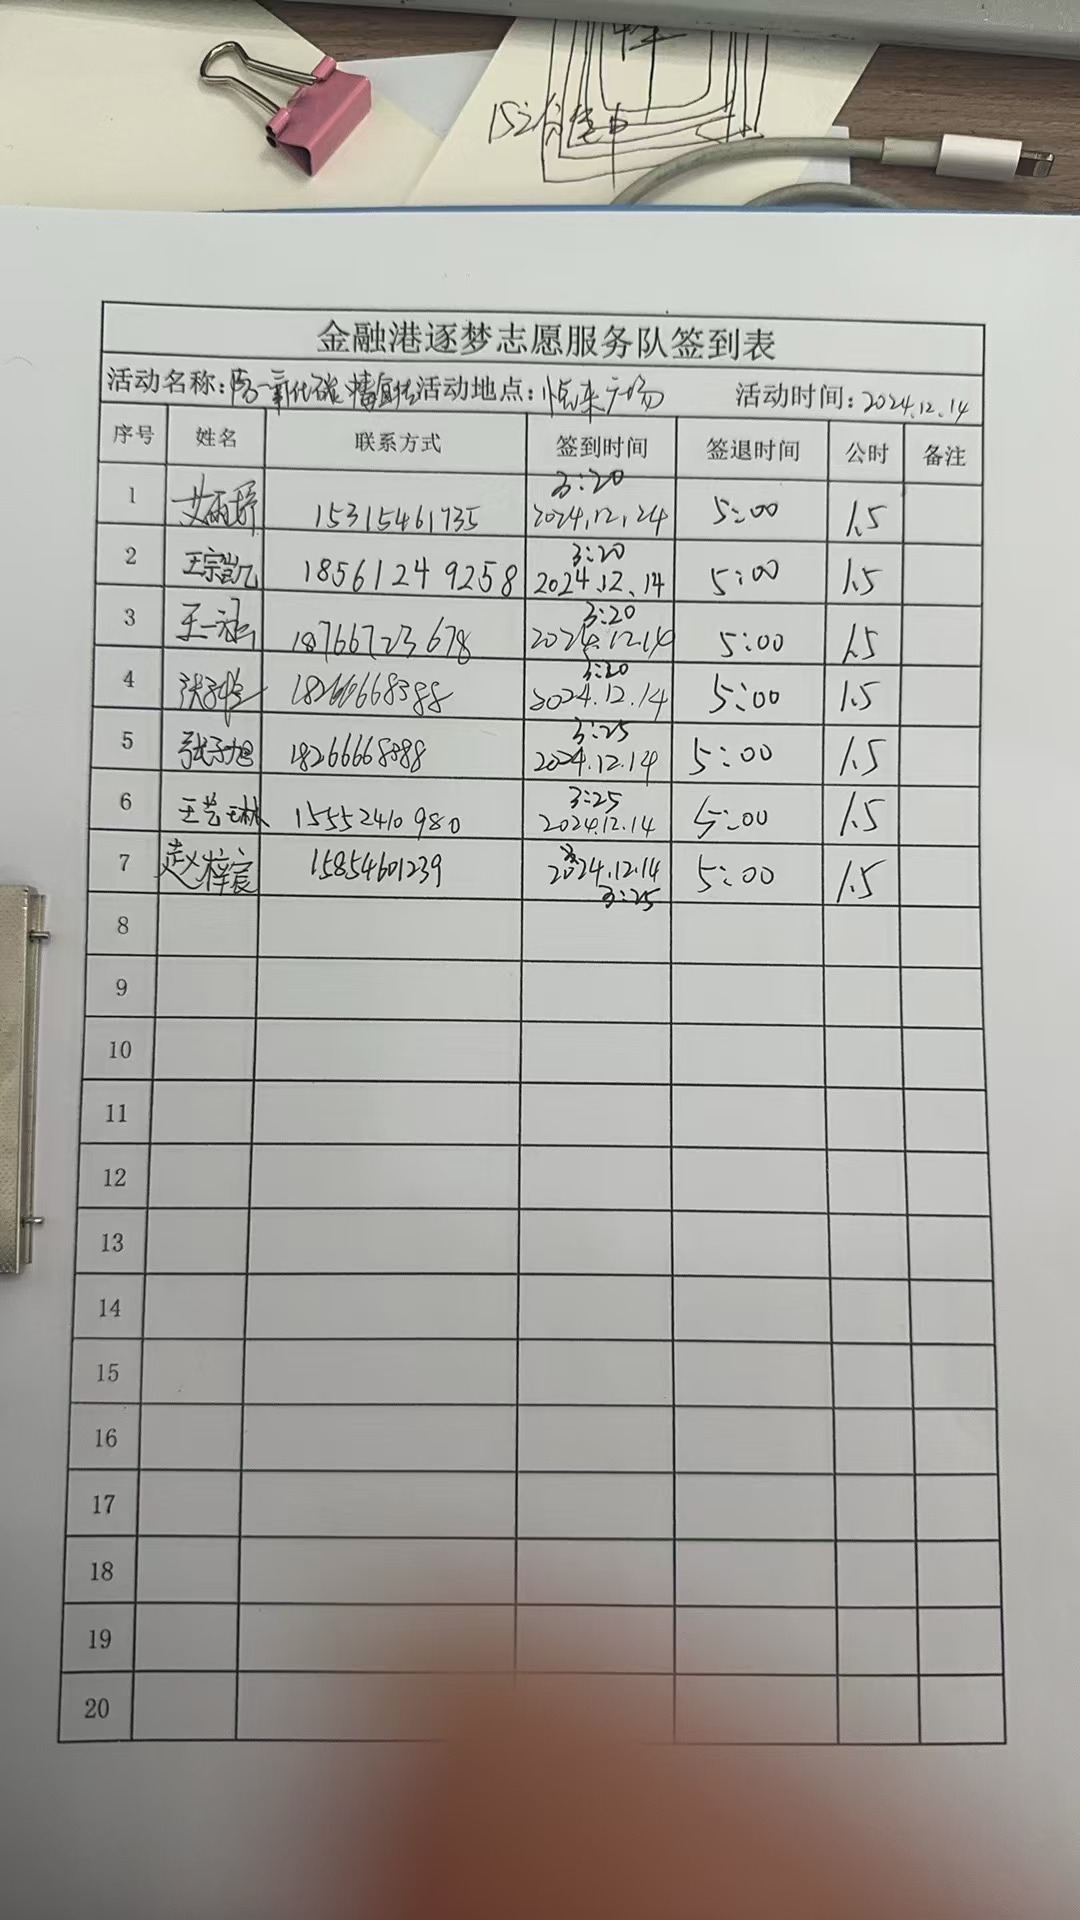 15
金融港逐梦志愿服务队签到表
活动名称:防一氧化碳 宣传 活动地点:悦来广场 活动时间:2024.12.14
序号 姓名 联系方式 签到时间 签退时间 公时 备注
3:20
1 艾雨婷 15315461735 2024.12.24 5:00 1.5
3:20
2 王宗凯 18561249258 2024.12.14 5:00 1.5
3:20
3 王一 18766723678 2024.12.14 5:00 1.5
3:20
4 张 18266668388 2024.12.14 5:00 1.5
3:25
5 张子旭 18266668388 2024.12.14 5:00 1.5
3:25
6 王艺琳 15552410980 2024.12.14 5:00 1.5
7 赵梓宸 15854601239 2024.12.14 5:00 1.5
3:25
8
9
10
11
12
13
14
15
16
17
18
19
20